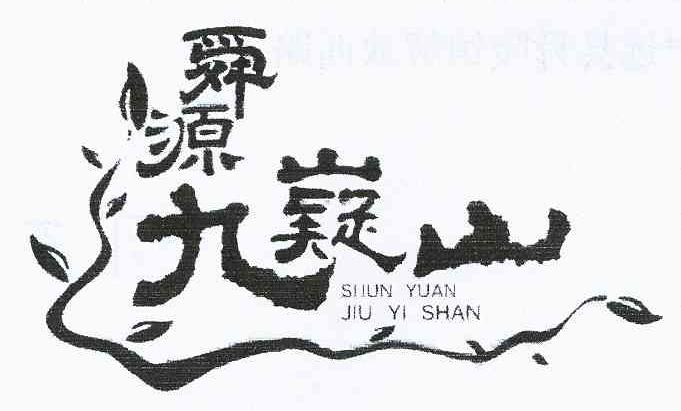 舜源
九嶷山
SHUN YUAN
JIU YI SHAN